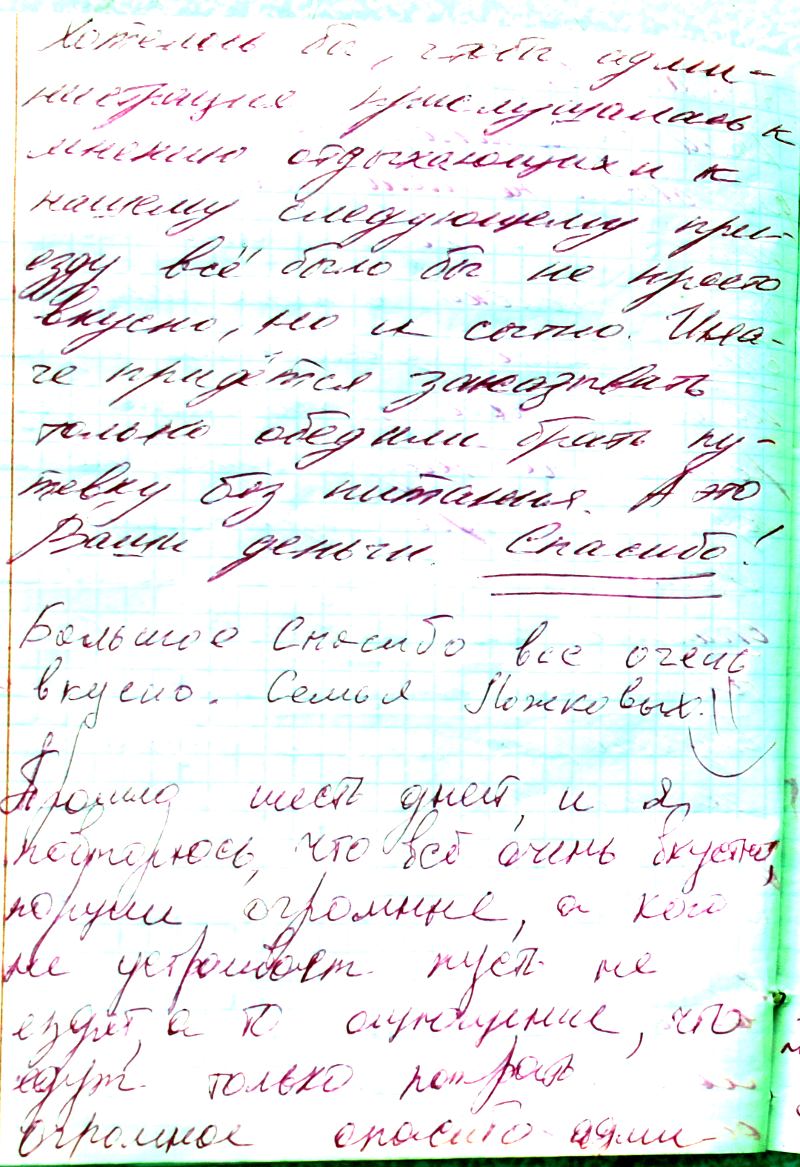 Хотелось бы, чтобы адми-
нистрация прислушалась к
мнению отдыхающих и к
нашему следующему при-
езду всё было бы не просто
вкусно, но и сытно. Ина-
че придётся заказывать
только обеды или брать пу-
тевку без питания. А это
Ваши деньги. Спасибо!
Большое Спасибо все очень
вкусно. Семья Ложковых.
Прошло шесть дней, и я
повторюсь, что всё очень вкусно,
порции огромные, а кого
не устроивает пусть не
ездят, а то ощущение, что
едут только пожрать
огромное спасибо адми-